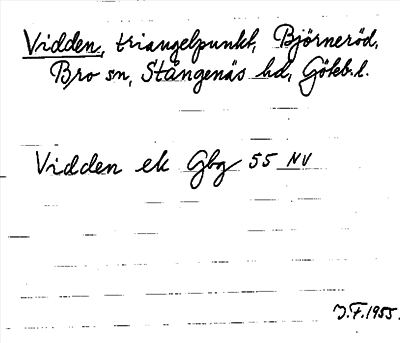 Vidden, triangelpunkt, Björneröd,
Bro sn, Stångenäs hd, Göteb.l.
Vidden ek Gbg 55 NV
J.F.1955.